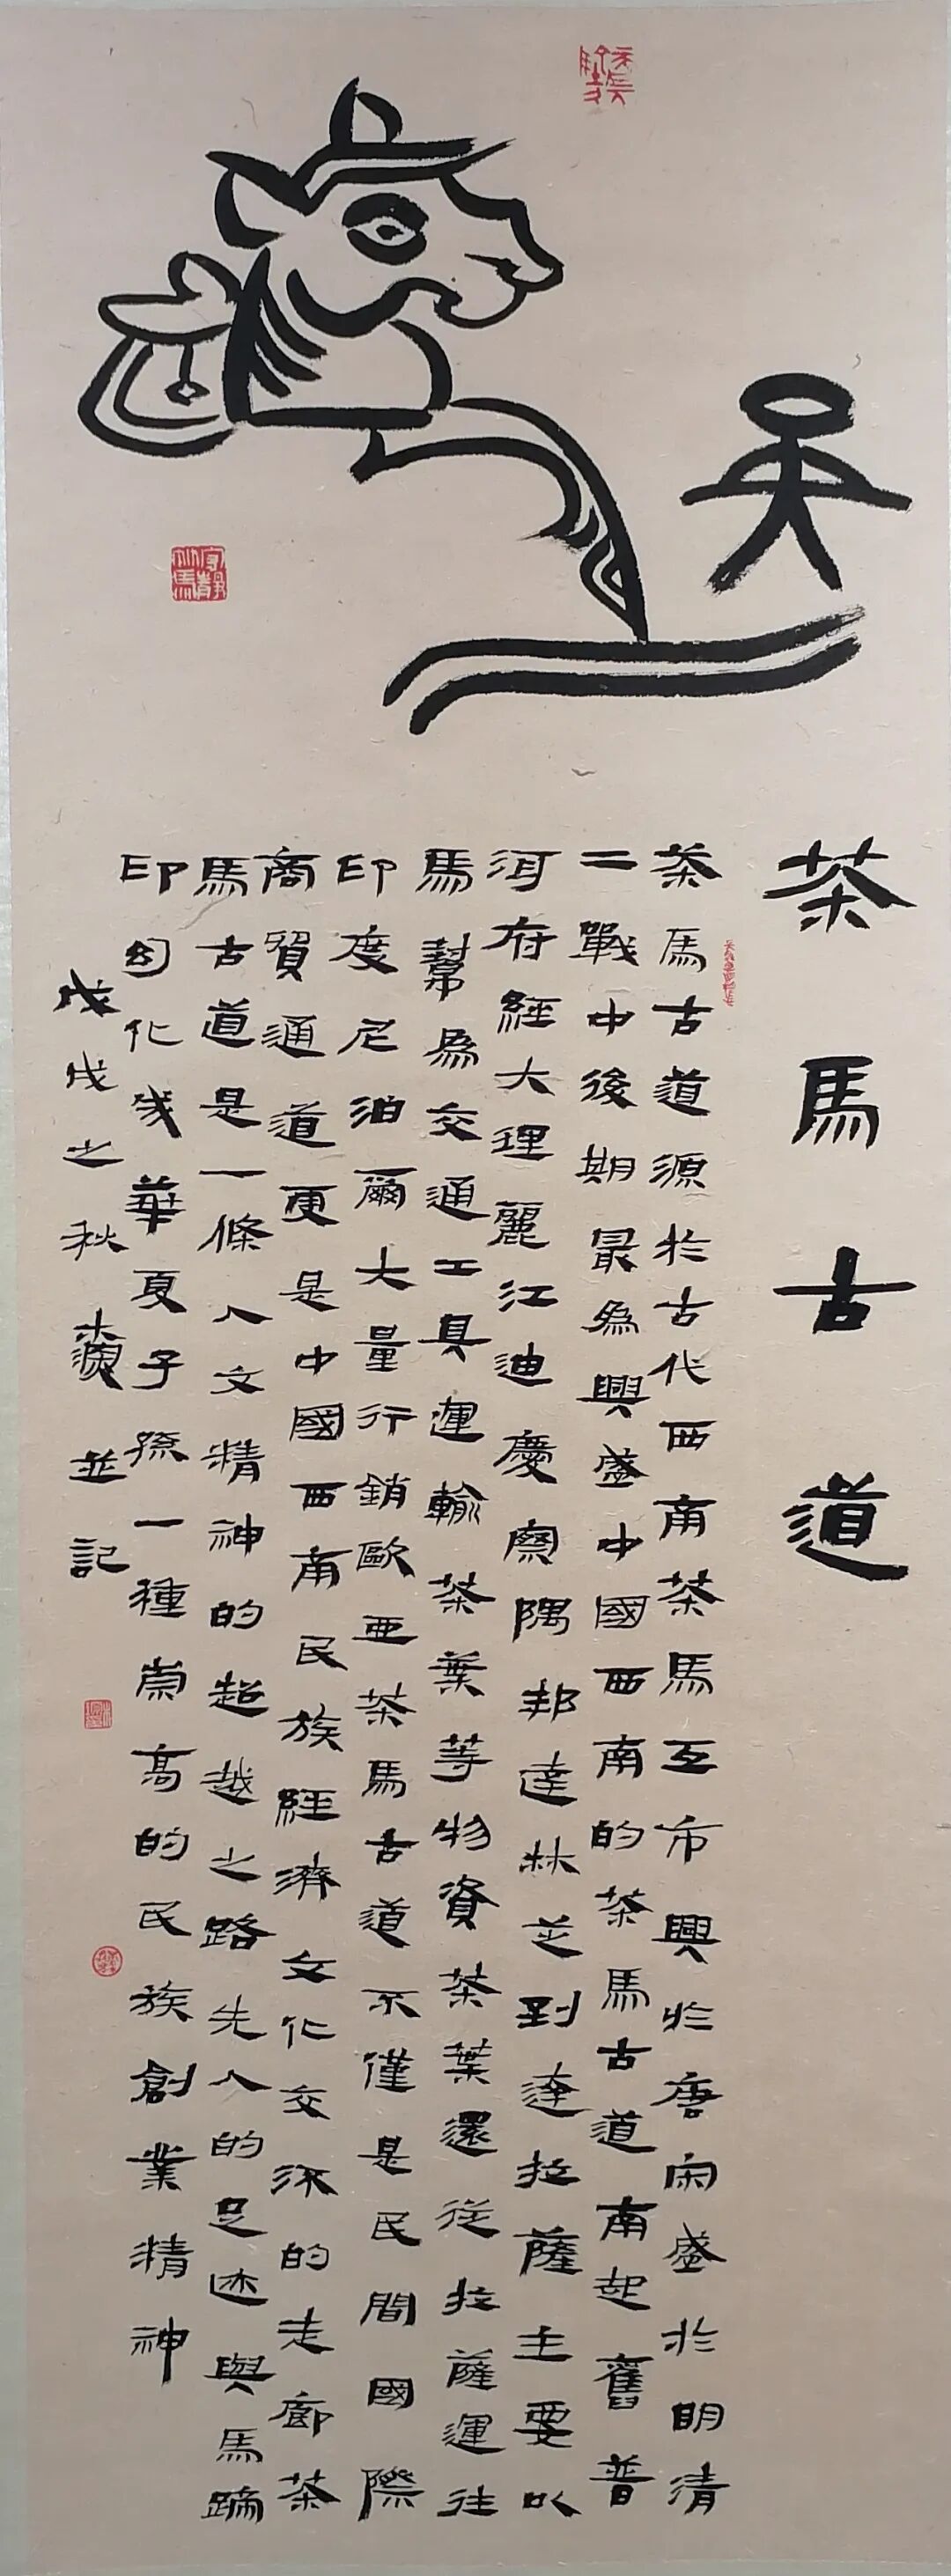 茶馬古道
茶馬古道源於古代西南茶馬互市興於唐宋盛於明清
二戰中後期最為興盛中國西南的茶馬古道南起舊普
洱府經大理麗江迪慶察隅邦達林芝到達拉薩主要以
馬幫為交通工具運輸茶葉等物資茶葉還從拉薩運往
印度尼泊爾大量行銷歐亞茶馬古道不僅是民間國際
商貿通道更是中國西南民族經濟文化交流的走廊茶
馬古道是一條人文精神的超越之路先人的足迹與馬蹄
印幻化成華夏子孫一種崇高的民族創業精神
戊戌之秋並記